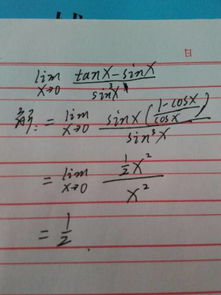 日
lim x→0 (tanx - sinx) / sin³x
解: = lim x→0 sinx((1-cosx)/cosx) / sin³x
= lim x→0 (1/2 x²) / x²
= 1/2